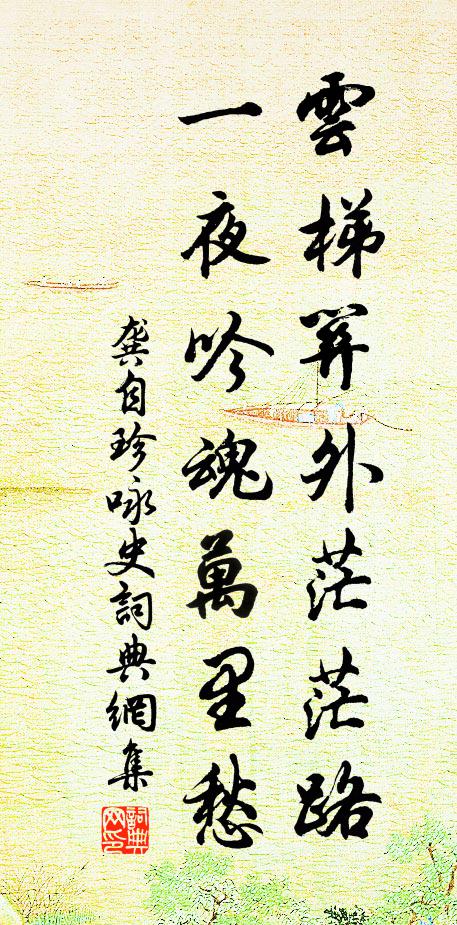 雲梯關外茫茫路
一夜吟魂萬里愁
龔自珍咏史詞典網集
詞典
网印